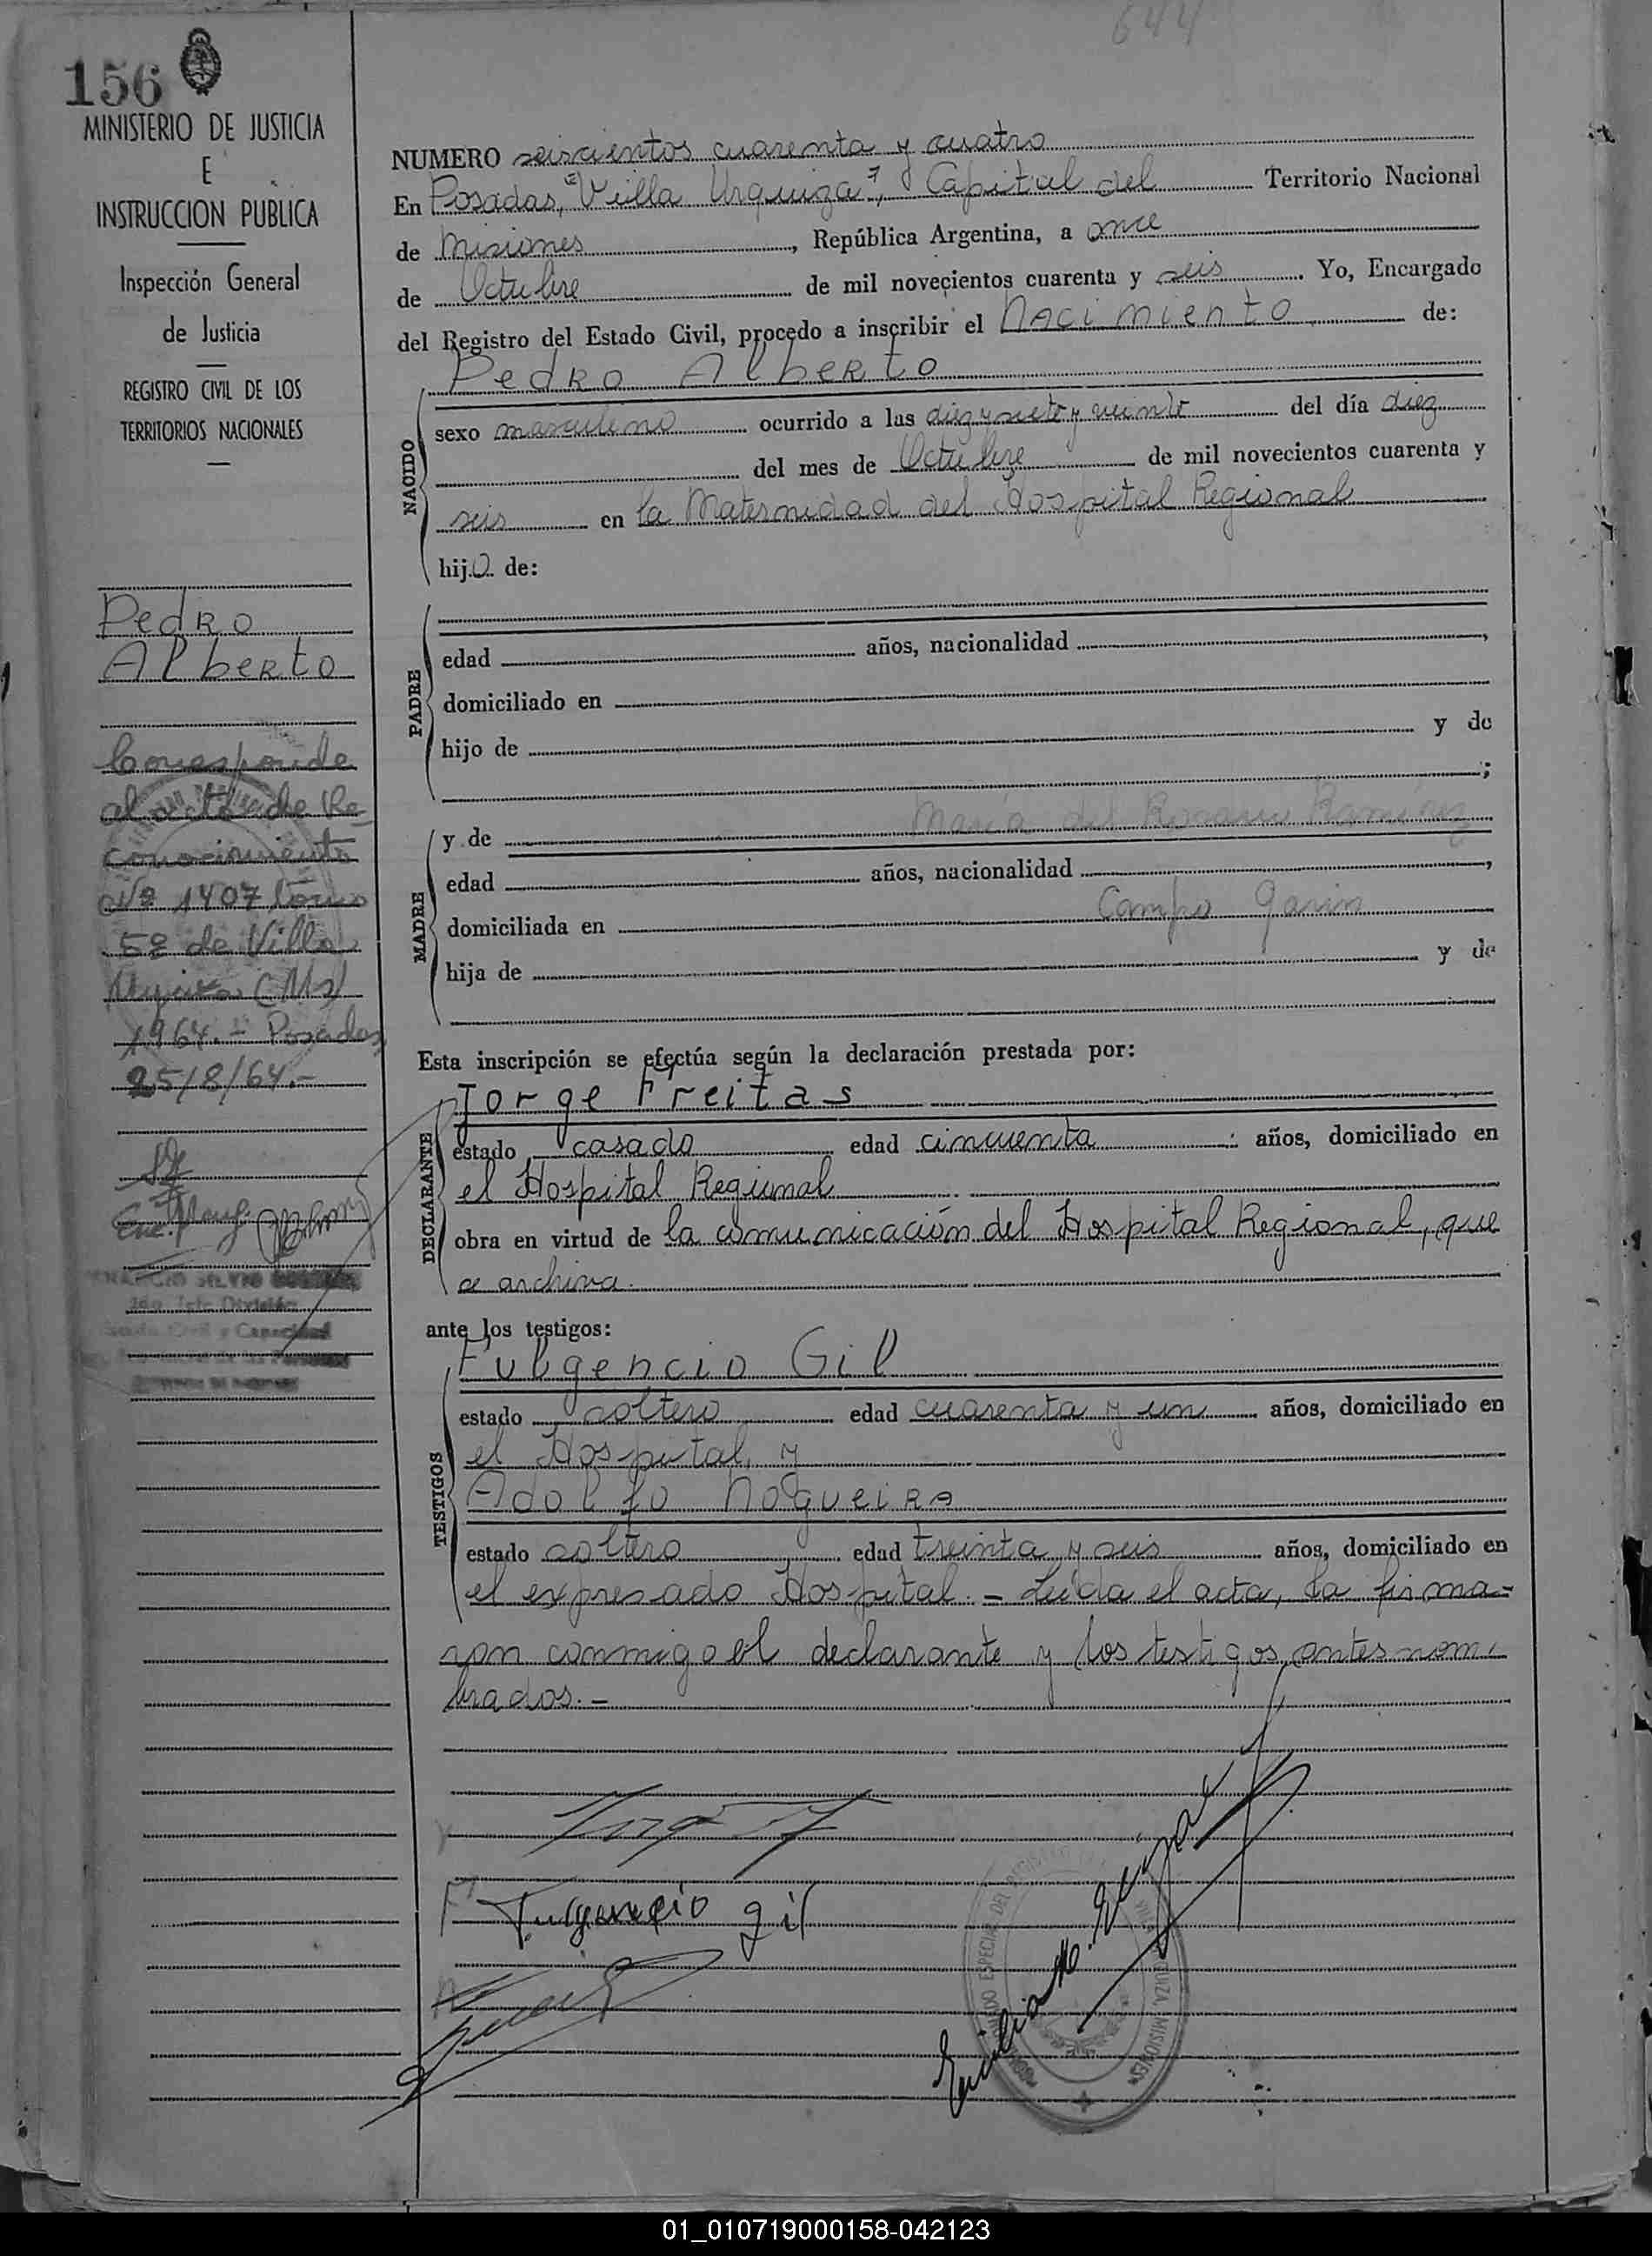 644
156
MINISTERIO DE JUSTICIA
E
INSTRUCCION PUBLICA
Inspección General
de Justicia
REGISTRO CIVIL DE LOS
TERRITORIOS NACIONALES
Pedro
Alberto
Corresponde
al acta de Re-
conocimiento
Nº 1407 tomo
5º de Villa
Urquiza (Ms)
1964.- Posadas
25/8/64.-
NUMERO seiscientos cuarenta y cuatro
En Posadas, "Villa Urquiza", Capital del Territorio Nacional
de Misiones, República Argentina, a once
de Octubre de mil novecientos cuarenta y seis. Yo, Encargado
del Registro del Estado Civil, procedo a inscribir el Nacimiento de:
Pedro Alberto
NACIDO
sexo masculino ocurrido a las diez y siete y veinte del día diez
del mes de Octubre de mil novecientos cuarenta y
seis en la Maternidad del Hospital Regional
hijo de:
PADRE
edad años, nacionalidad ,
domiciliado en
hijo de y de
;
MADRE
y de María del Rosario Ramírez
edad años, nacionalidad ,
domiciliada en Campo Garin
hija de y de
Esta inscripción se efectúa según la declaración prestada por:
Jorge Freitas
DECLARANTE
estado casado edad cincuenta años, domiciliado en
el Hospital Regional
obra en virtud de la comunicación del Hospital Regional, que
se archiva.
ante los testigos:
Fulgencio Gil
TESTIGOS
estado soltero edad cuarenta y un años, domiciliado en
el Hospital, y
Adolfo Nogueira
estado soltero edad treinta y seis años, domiciliado en
el expresado Hospital.- Leída el acta, la firma=
ron conmigo el declarante y los testigos antes nom-
brados.-
Fulgencio gil
01_010719000158-042123